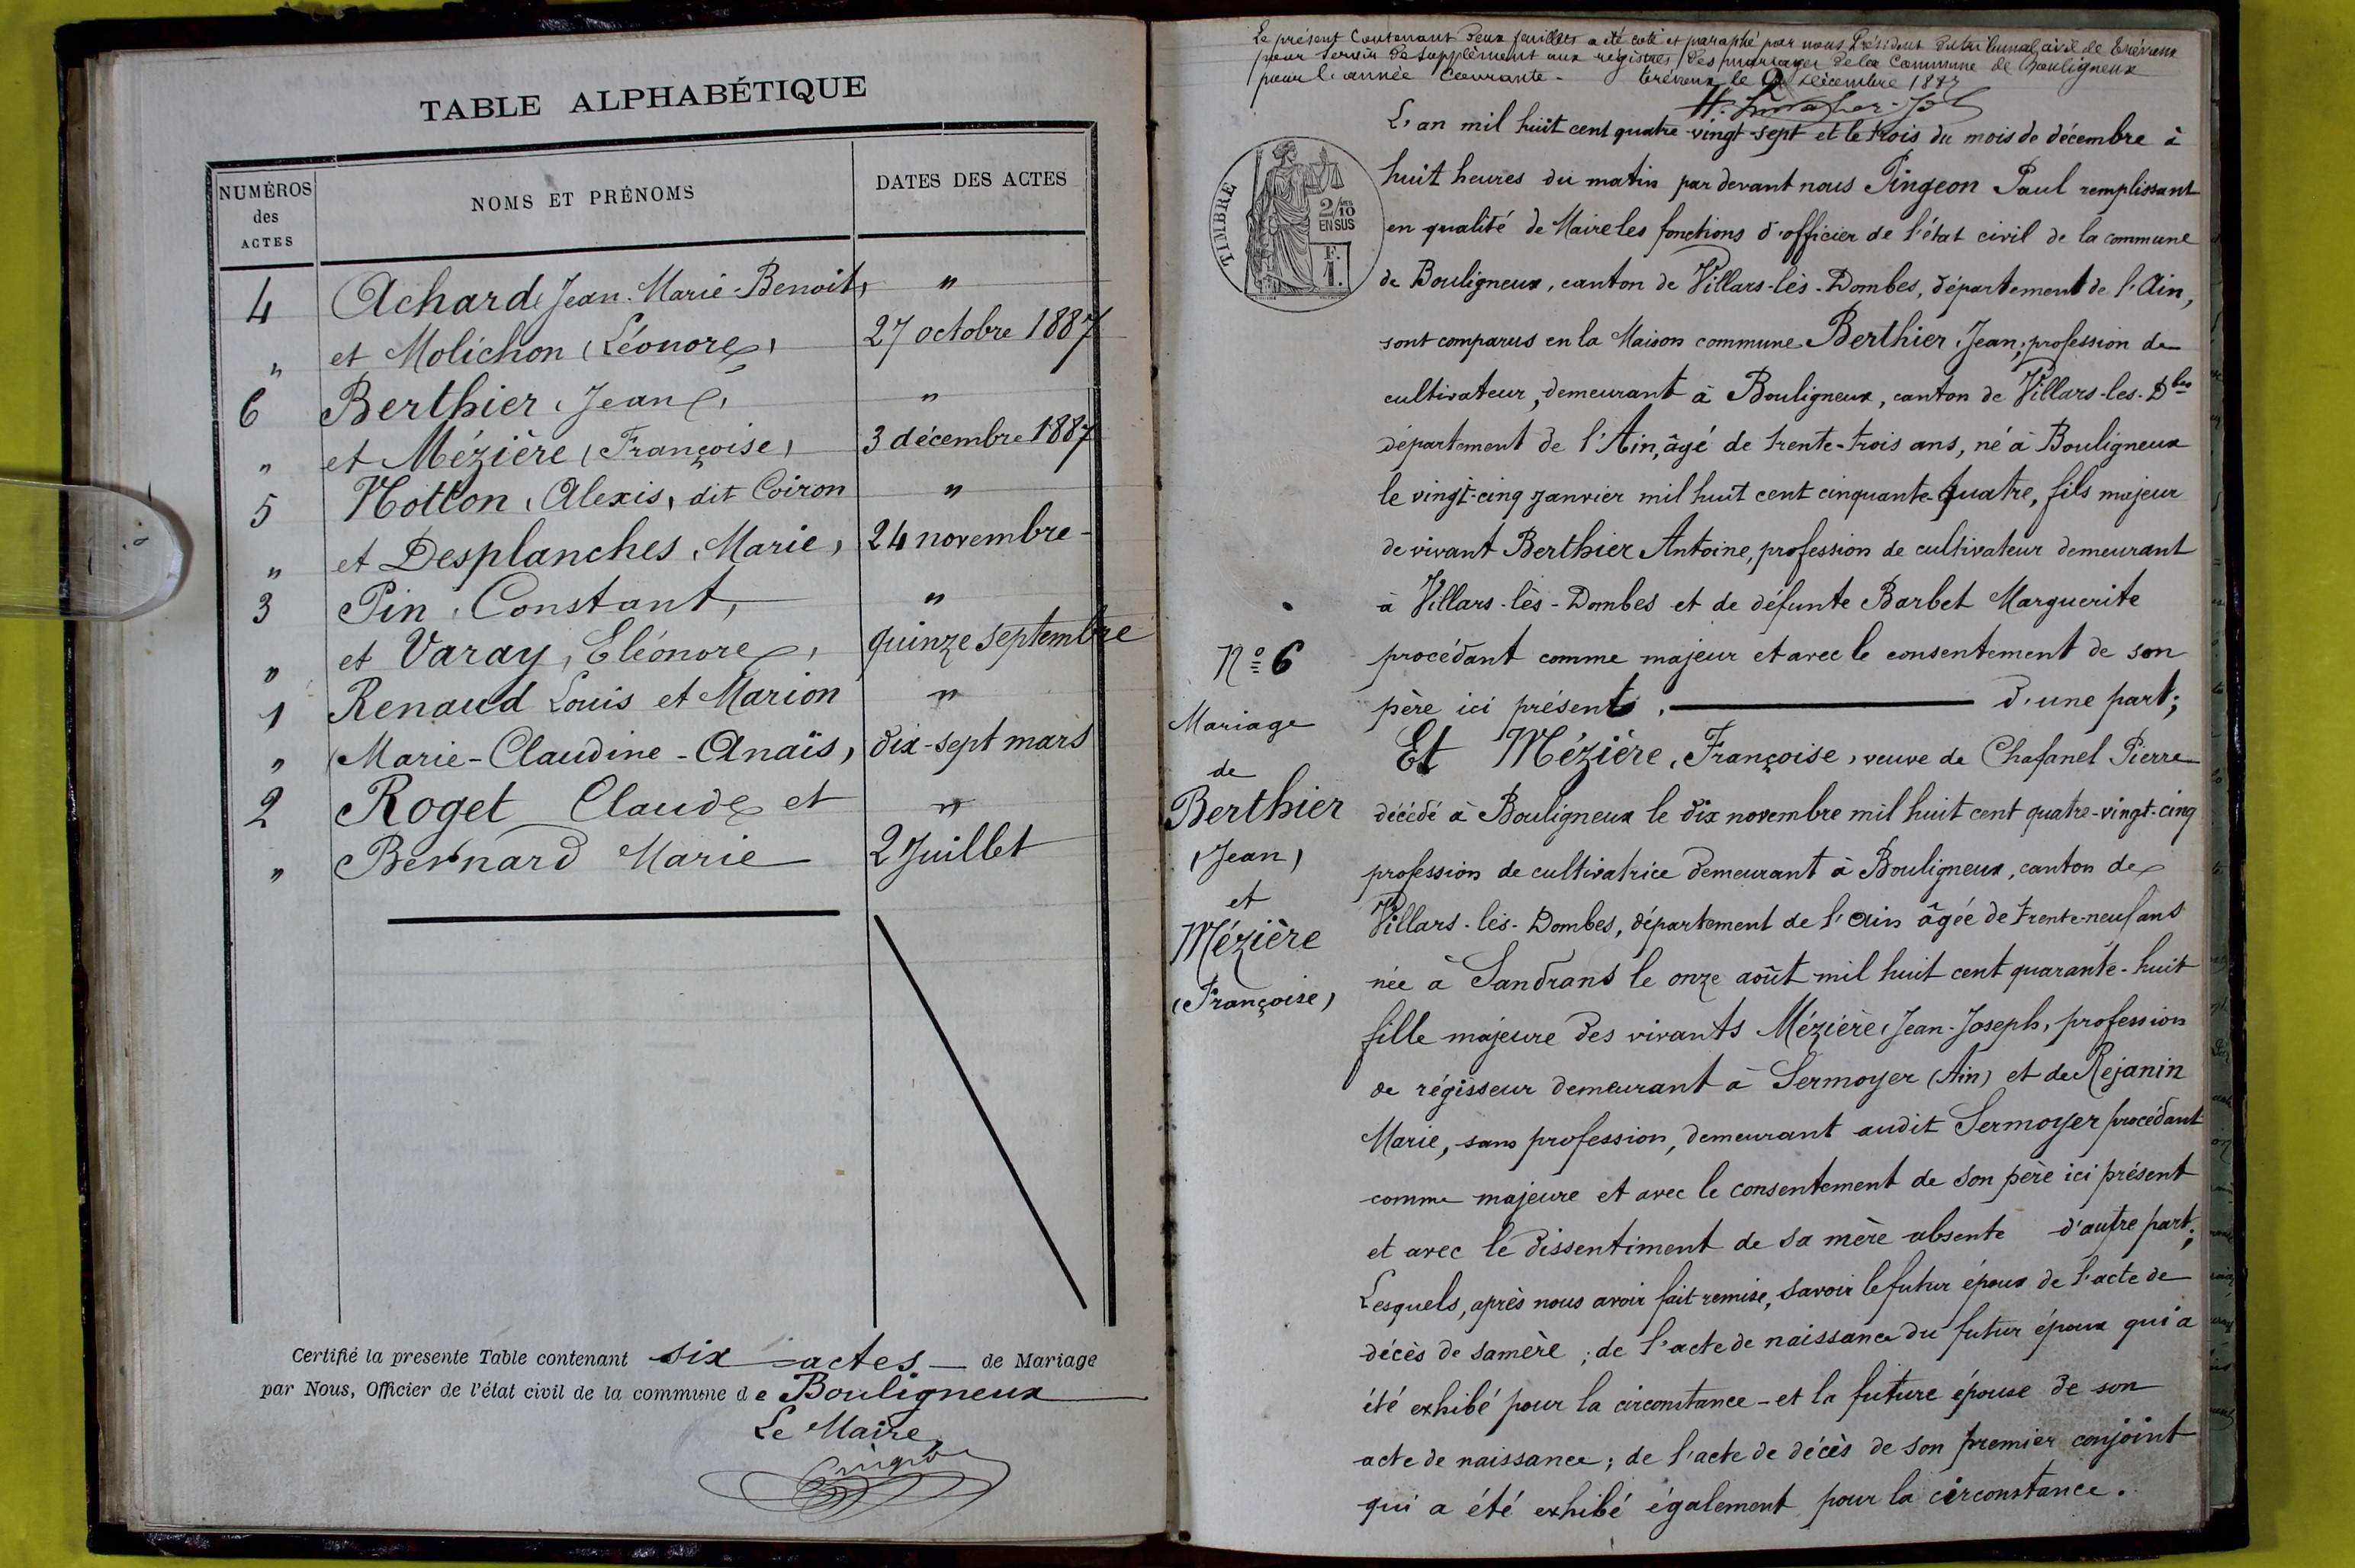 TABLE ALPHABÉTIQUE
NUMÉROS des ACTES
NOMS ET PRÉNOMS
DATES DES ACTES
4 Achard (Jean-Marie-Benoit) "
" et Molichon (Léonore) 27 octobre 1887
6 Berthier (Jean) "
" et Mézière (Françoise) 3 décembre 1887
5 Notton (Alexis) dit Coiron "
" et Desplanches (Marie) 24 novembre -
3 Pin (Constant) "
" et Varay (Eléonore) quinze septembre
1 Renaud Louis et Marion "
" (Marie-Claudine-Anaïs) dix-sept mars
2 Roget Claude et "
" Bernard Marie 2 Juillet
Certifié la presente Table contenant six actes de Mariage
par Nous, Officier de l'état civil de la commune de Bouligneux
Le Maire
Le présent Contenant deux feuilles a été coté et paraphé par nous Président du tribunal civil de Trévoux
pour servir de Supplément aux régistres des mariages de la Commune de Bouligneux
pour l'année Courante - Trévoux le 2 décembre 1887
TIMBRE
2/10
EN SUS
F.
1.
L'an mil huit cent quatre-vingt-sept et le trois du mois de décembre à
huit heures du matin par devant nous Pingeon Paul remplissant
en qualité de Maire les fonctions d'officier de l'état civil de la commune
de Bouligneux, canton de Villars-lès-Dombes, département de l'Ain,
sont comparus en la Maison commune Berthier (Jean), profession de
cultivateur, demeurant à Bouligneux, canton de Villars-les-Dbes
département de l'Ain, âgé de trente-trois ans, né à Bouligneux
le vingt-cinq janvier mil huit cent cinquante-quatre, fils majeur
de vivant Berthier Antoine, profession de cultivateur demeurant
à Villars-lès-Dombes et de défunte Barbet Marguerite
procédant comme majeur et avec le consentement de son
père ici présent. d'une part;
Et Mézière (Françoise) veuve de Chafanel Pierre
décédé à Bouligneux le dix novembre mil huit cent quatre-vingt-cinq
profession de cultivatrice demeurant à Bouligneux, canton de
Villars-lès-Dombes, département de l'Ain âgée de trente-neuf ans
née à Sandrans le onze août mil huit cent quarante-huit
fille majeure des vivants Mézière (Jean-Joseph) profession
de régisseur demeurant à Sermoyer (Ain) et de Rejanin
Marie, sans profession, demeurant audit Sermoyer procédant
comme majeure et avec le consentement de son père ici présent
et avec le dissentiment de sa mère absente d'autre part;
Lesquels, après nous avoir fait remise, savoir le futur époux de l'acte de
décès de sa mère; de l'acte de naissance du futur époux qui a
été exhibé pour la circonstance - et la future épouse de son
acte de naissance; de l'acte de décès de son premier conjoint
qui a été exhibé également pour la circonstance.
No 6
Mariage
de
Berthier
(Jean)
et
Mézière
(Françoise)